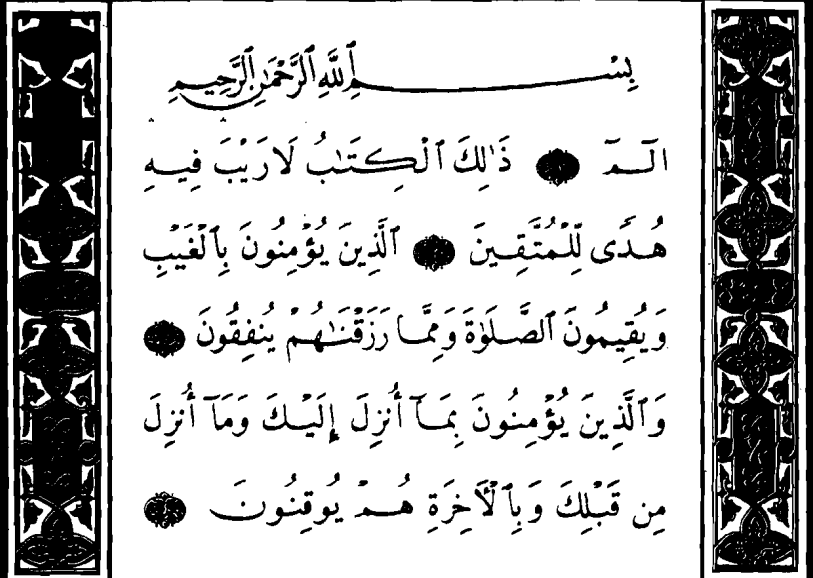 بِسْمِ ٱللَّهِ ٱلرَّحْمَٰنِ ٱلرَّحِيمِ
الٓمٓ ذَٰلِكَ ٱلْكِتَٰبُ لَا رَيْبَ فِيهِ
هُدًى لِّلْمُتَّقِينَ ٱلَّذِينَ يُؤْمِنُونَ بِٱلْغَيْبِ
وَيُقِيمُونَ ٱلصَّلَوٰةَ وَمِمَّا رَزَقْنَٰهُمْ يُنفِقُونَ
وَٱلَّذِينَ يُؤْمِنُونَ بِمَآ أُنزِلَ إِلَيْكَ وَمَآ أُنزِلَ
مِن قَبْلِكَ وَبِٱلْءَاخِرَةِ هُمْ يُوقِنُونَ